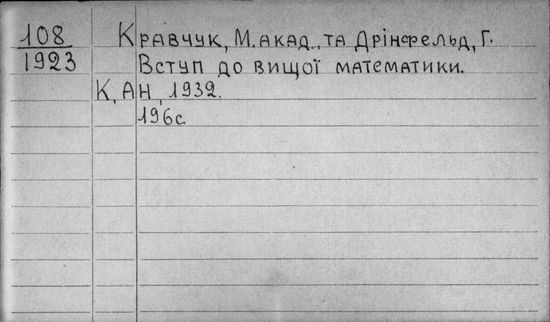 108
1923
Кравчук, М. акад., та Дрінфельд, Г.
Вступ до вищої математики.
К, АН, 1932.
196с.